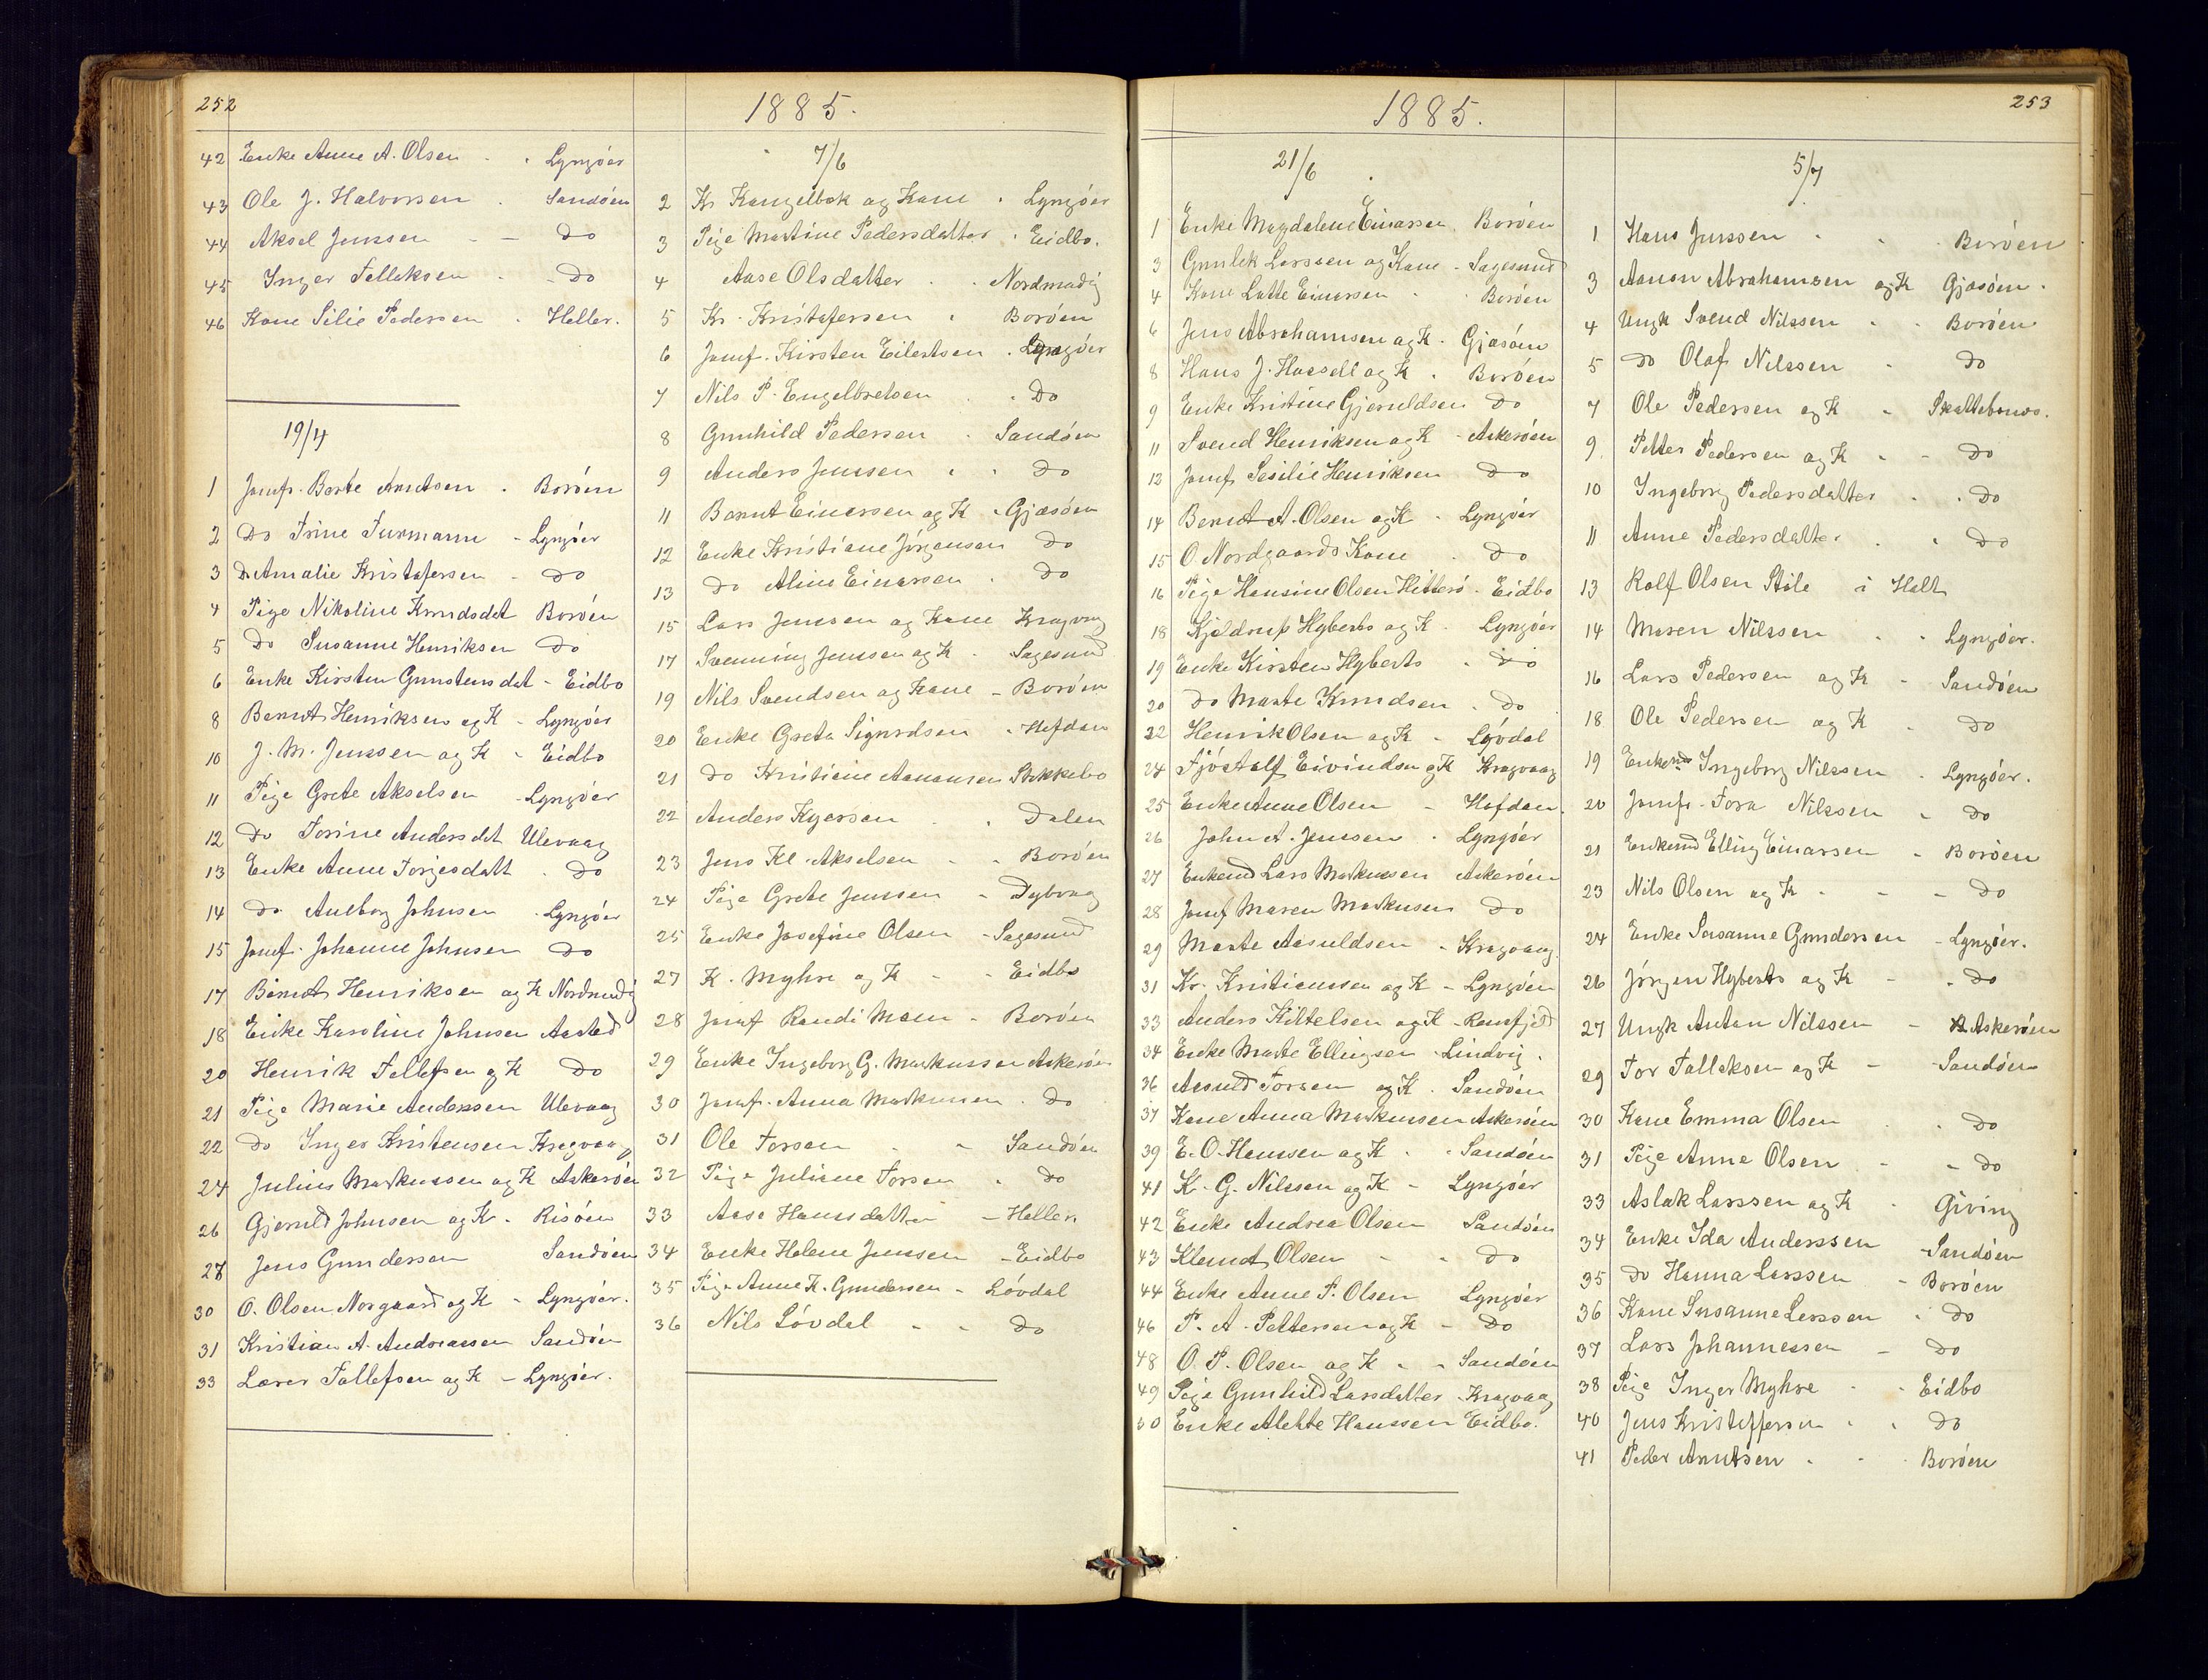 252
1885.
42 Enke Anne A. Olsen - Lyngöer
43 Ole J. Halvorsen - Sandöen
44 Aksel Jenssen - - Do
45 Inger Tellefsen - Do
46 Kone Silie Pedersen - Heller.
19/4
1 Jomfr. Berte Knutsen - Boröen
2 Do Trine Furmann - Lyngöer
3 Do Amalie Kristofersen - Do
4 Pige Nikoline Knudsdat Boröen
5 Do Susanne Henriksen Do
6 Enke Kirsten Gunstensdat - Eidbo
8 Bernt Henriksen og K - Lyngöer
10 J. M. Jenssen og K - Eidbo
11 Pige Grete Akselsen - Lyngöer
12 Do Torine Andersdt Ulevaag
13 Enke Anne Torjesdatt - Do
14 Do Aulborg Johnsen - Lyngöer
15 Jomf. Johanne Johnsen Do
17 Bernt Henriksen og K Nordmudig
18 Enke Karoline Johnsen Aasted
20 Henrik Tellefsen og K Do
21 Pige Marie Anderssen Ulevaag
22 Do Inger Kristensen Kragvaag
24 Julius Markussen og K Askeröen
26 Gjeruld Johnsen og K - Risöen
27 Jens Gundersen Sandöen
30 O. Olsen Norgaard og K - Lyngöer.
31 Kristian A. Andreassen Sandöen
33 Lærer Tallefsen og K - Lyngöer.
7/6
2 Kr Kangelbok og Kone - Lyngöer
3 Pige Martine Pedersdatter - Eidbo.
4 Aase Olsdatter - - Nordmudig
5 Kr. Kristofersen - Boröen
6 Jomf. Kirsten Eilertsen - Lyngöer
7 Nils P. Engelbretsen - - Do
8 Gunhild Pedersen - Sandöen
9 Anders Jenssen - - Do
11 Bernt Einersen og K - Gjæsöen
12 Enke Kristiane Jörgensen Do
13 Do Aline Einersen - Do
15 Lars Jenssen og Kone Kragvaag
17 Svenning Jenssen og K - Sagesund
19 Nils Svendsen og Kone - Boröen
20 Enke Grete Sigurdsen - Hefdan
21 Do Kristiane Aanonsen Stokkebo
22 Anders Kjersen - Dalen
23 Jens Kl. Akselsen - - Boröen
24 Pige Grete Jenssen - Dybvaag
25 Enke Josefine Olsen - Sagesund
27 K. Myhre og K - - Eidbo
28 Jomf Randi Moen - Boröen
29 Enke Ingeborg G. Markussen Askeröen
30 Jomf. Anna Markussen - Do
31 Ole Torsen - Sandöen
32 Pige Juliane Torsen - Do
33 Aase Hansdatter - Heller
34 Enke Helene Jenssen - Eidbo
35 Pige Anne K. Gundersen - Lövdal
36 Nils Lövdal - - Do
253
1885.
21/6
1 Enke Magdalene Einarsen Boröen
3 Gunlek Larssen og Kone - Sagesund
4 Kone Latte Einersen - - Boröen
6 Jens Abrahamsen og K. Gjæsöen
8 Hans J. Hassell og K - Boröen
9 Enke Kristine Gjeruldsen Do
11 Svend Henriksen og K - Askeröen
12 Jomf Sesilie Henriksen Do
14 Bernt A. Olsen og K - Lyngöer
15 O. Nordgaards Kone - Do
16 Pige Hansine Olsen Hitterö - Eidbo
18 Kjeldrup Hyberts og K - Lyngöer
19 Enke Kirsten Hyberts - Do
20 Do Marte Knudsen - Do
22 Henrik Olsen og K - Lövdal
24 Tjöstolf Eivindsen og K Kragvaag
25 Enke Anne Olsen - Hofdan
26 John A. Jenssen - Lyngöer
27 Enkemd Lars Markussen Askeröen
28 Jomf Maren Markusen Do
29 Marte Aasuldsen - Kragvaag
31 Kr. Kristianssen og K - Lyngöen
33 Anders Kittelsen og K - Ramfjeld
34 Enke Marte Ellingsen - Lindvig.
36 Aasuld Torsen og K - Sandöen
37 Kone Anna Markussen Askeröen
39 E. O. Hanssen og K - - Sandöen
41 K. G. Nilssen og K - Lyngöer
42 Enke Andrea Olsen Sandöen
43 Klemet Olsen - - Do
44 Enke Anne P. Olsen Lyngöer
46 P. A. Pettersen og K - Do
48 O. P. Olsen og K - - Sandöen
49 Pige Gunhild Larsdatter - Kragvaag
50 Enke Alette Hanssen Eidbo.
5/7
1 Hans Jenssen - - Boröen
3 Aanon Abrahamsen og K Gjæsöen.
4 Ungk Svend Nilssen - - Boröen
5 Do Olaf Nilssen - Do
7 Ole Pedersen og K -
9 Petter Pedersen og K - - Do
10 Ingeborg Pedersdatter - - Do
11 Anne Pedersdatter - - Do
13 Rolf Olsen Stöle i Holt
14 Maren Nilssen - - Lyngöer.
16 Lars Pedersen og K - Sandöen
18 Ole Pedersen og K - Do
19 Enke Ingeborg Nilssen - Lyngöer.
20 Jomfr. Tora Nilssen - Do
21 Enkemd Elling Einarsen - Boröen
23 Nils Olsen og K - - - Do
24 Enke Susanne Gundersen - Lyngöer.
26 Jörgen Hyberts og K - - Do
27 Ungk Anton Nilssen - Askeröen
29 Tor Tallaksen og K - Sandöen
30 Kone Emma Olsen - Do
31 Pige Anne Olsen - - Do
33 Aslak Larssen og K - Giving
34 Enke Ida Anderssen - Sandöen
35 Do Hanna Larssen - Boröen
36 Kone Susanne Larssen - Do
37 Lars Johannessen - Do
38 Pige Inger Myhre - - Eidbo
40 Jens Kristoffersen - - Do
41 Peder Knutsen - - Boröen